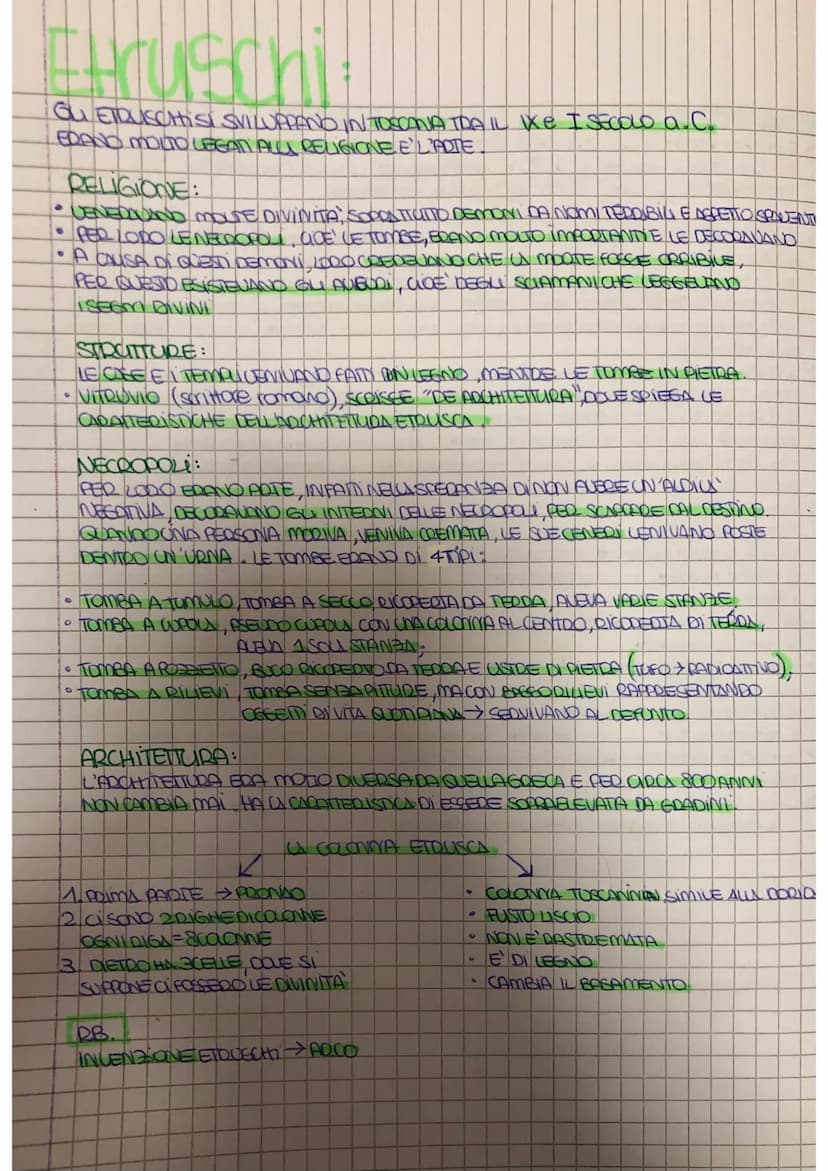 Etruschi:
GLI ETRUSCHI SI SVILUPPANO IN TOSCANA TRA IL IX e I SECOLO a.C.
ERANO MOLTO LEGATI ALLA RELIGIONE E L'ARTE.
RELIGIONE:
• VENERAVANO MOLTE DIVINITA', SOPRATTUTTO DEMONI DA NOMI TERRIBILI E ASPETTO SPAVENT
• PER LORO LE NECROPOLI, CIOE' LE TOMBE, ERANO MOLTO IMPORTANTI E LE DECORAVANO
• A CAUSA DI QUESTI DEMONI, LORO CREDEVANO CHE LA MORTE FOSSE ORRIBILE,
PER QUESTO ESISTEVANO GLI AUGURI, CIOE' DEGLI SCIAMANI CHE LEGGEVANO
I SEGNI DIVINI
STRUTTURE:
LE CASE E I TEMPLI VENIVANO FATTI IN LEGNO, MENTRE LE TOMBE IN PIETRA.
• VITRUVIO (scrittore romano), SCRISSE "DE ARCHITETTURA", DOVE SPIEGA LE
CARATTERISTICHE DELL'ARCHITETTURA ETRUSCA.
NECROPOLI:
PER LORO ERANO ARTE, INFATTI NELLA SPERANZA DI NON AVERE UN'ALDILA'
NEGATIVA, DECORAVANO GLI INTERNI DELLE NECROPOLI, PER SCAPPARE DAL DESTINO.
QUANDO UNA PERSONA MORIVA, VENIVA CREMATA, LE SUE CENERI VENIVANO POSTE
DENTRO UN'URNA. LE TOMBE ERANO DI 4 TIPI:
• TOMBA A TUMULO, TOMBA A SECCO, RICOPERTA DA TERRA, AVEVA VARIE STANZE
• TOMBA A CUPOLA, PSEUDO CUPOLA CON UNA COLONNA AL CENTRO, RICOPERTA DI TERRA,
AVEVA 1 SOLA STANZA;
• TOMBA A POZZETTO, BUCO RICOPERTO DA TERRA E LASTRE DI PIETRA (TUFO → RADIOATTIVO);
• TOMBA A RILIEVI, TOMBA SENZA PITTURE, MA CON BASSORILIEVI RAPPRESENTANDO
OGGETTI DI VITA QUOTIDIANA → SERVIVANO AL DEFUNTO.
ARCHITETTURA:
L'ARCHITETTURA ERA MOLTO DIVERSA DA QUELLA GRECA E PER CIRCA 800 ANNI
NON CAMBIA MAI. HA LA CARATTERISTICA DI ESSERE SOPRAELEVATA DA GRADINI.
LA COLONNA ETRUSCA
1. PRIMA PARTE → PRONAO
2. CI SONO 2 RIGHE DI COLONNE
OGNI RIGA = 8 COLONNE
3. DIETRO HA 3 CELLE, DOVE SI
SUPPONE CI FOSSERO LE DIVINITA'
• COLONNA SIMILE ALLA DORICA
• FUSTO LISCIO
• NON E' RASTREMATA
• E' DI LEGNO
• CAMBIA IL BASAMENTO
RB.
INVENZIONE ETRUSCHI → ARCO